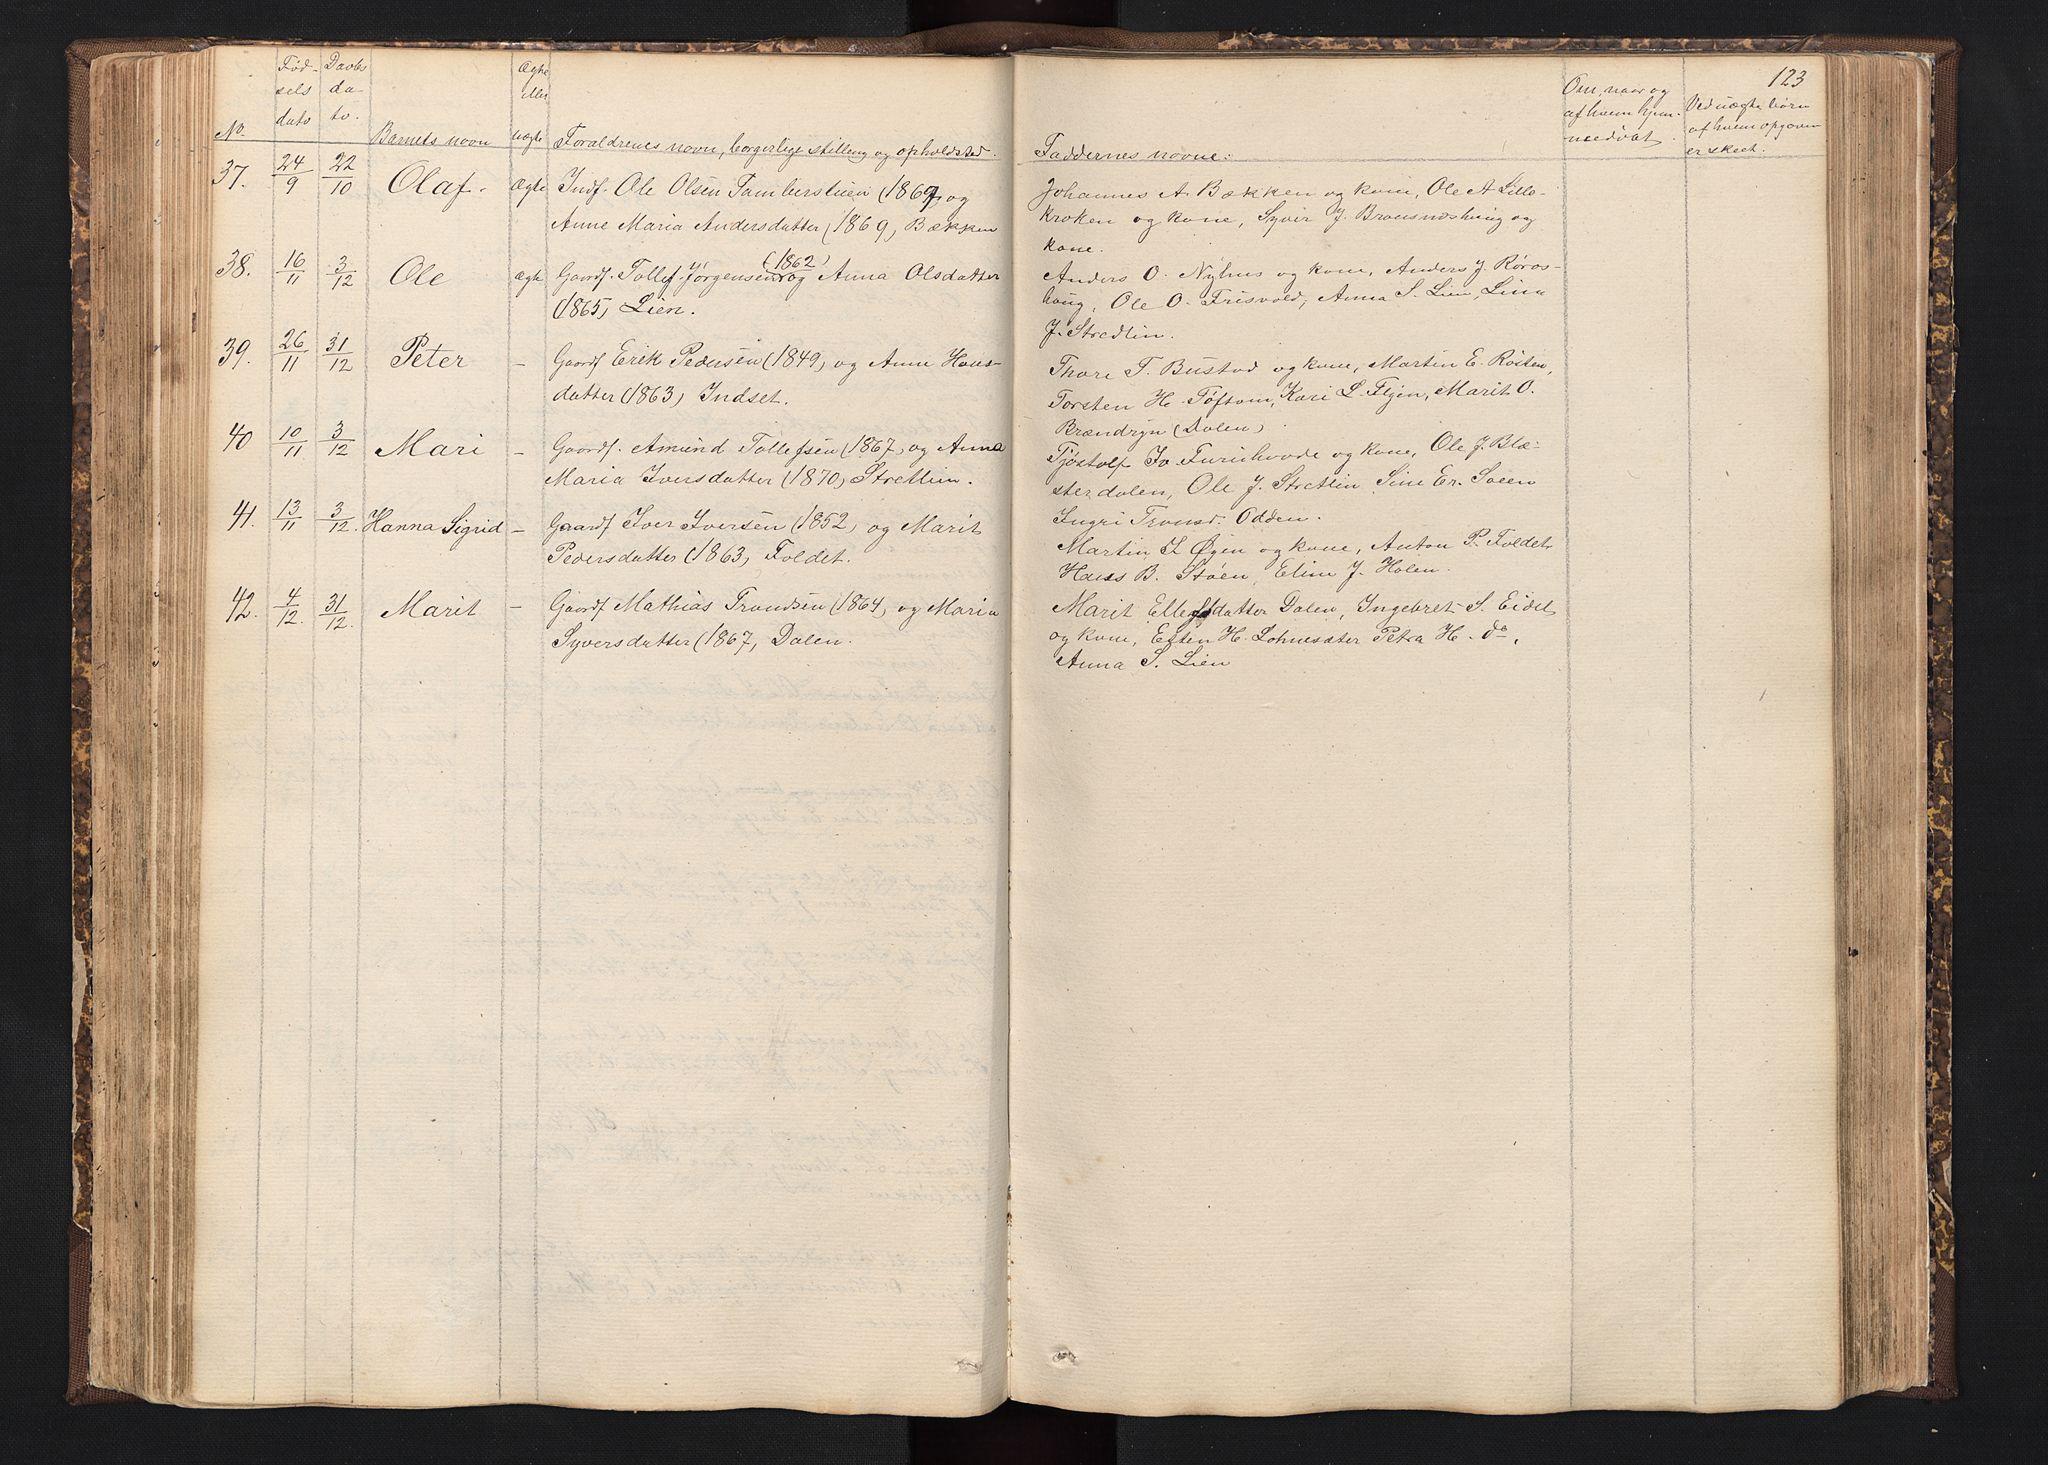 123
No.
Fødselsdato
Daabsdato.
Barnets navn
Ægte eller uægte
Forældrenes navn, borgerlige stilling og opholdssted.
37. 24/9 22/10 Olaf. Ægte Indf. Ole Olsen Tamberslien (1869) og
Anne Maria Andersdatter (1869), Bækken
38. 16/11 3/12 Ole ægte Gaardf. Tollef Jörgensen (1862) og Anna Olsdatter
(1865) Lien.
39. 26/11 31/12 Peter — Gaardf Erik Pedersen (1849) og Anne Hans-
datter (1863) Indset.
40 10/11 3/12 Mari — Gaardf. Amund Tollefsen (1867) og Anna
Maria Iversdatter (1870) Stretlien.
41. 13/11 3/12. Hanna Sigrid — Gaardf Iver Iversen (1852) og Marit
Pedersdatter (1863) Foldet.
42. 4/12. 31/12. Marit — Gaardf Mathias Trondsen (1864) og Maria
Syversdatter (1867, Dalen.
Faddernes navne:
Om, naar og
af hvem hjem-
medøbt.
Ved uægte børn
af hvem opgaven
er skeet.
Johannes A. Bækken og kone, Ole A Lille-
kroken og kone, Syver J. Brænsmoshaug og
kone.
Anders O. Nyhus og kone, Anders J. Røros-
haug, Ole O. Frisvold, Anna S. Lien, Lina
J. Stredlin.
Thore T. Bustad og kone, Martin E. Røsten,
Torsten H. Töftom, Kari L. Flyen, Marit O.
Brændryn (Dalen)
Tjöstolf Furuhovde og kone, Ole J. Blæ-
sterdalen, Ole J. Stretlin, Sine Er. Sveen
Ingri Tronsd. Odden.
Martin I. Øyen og kone, Anton P. Foldet
Hans B. Støen, Eline J. Holen.
Marit Ellefsdatter Dalen, Ingebret S. Eidet
og kone, Esten H. Lohnesæter Petra H. do,
Anna S. Lien